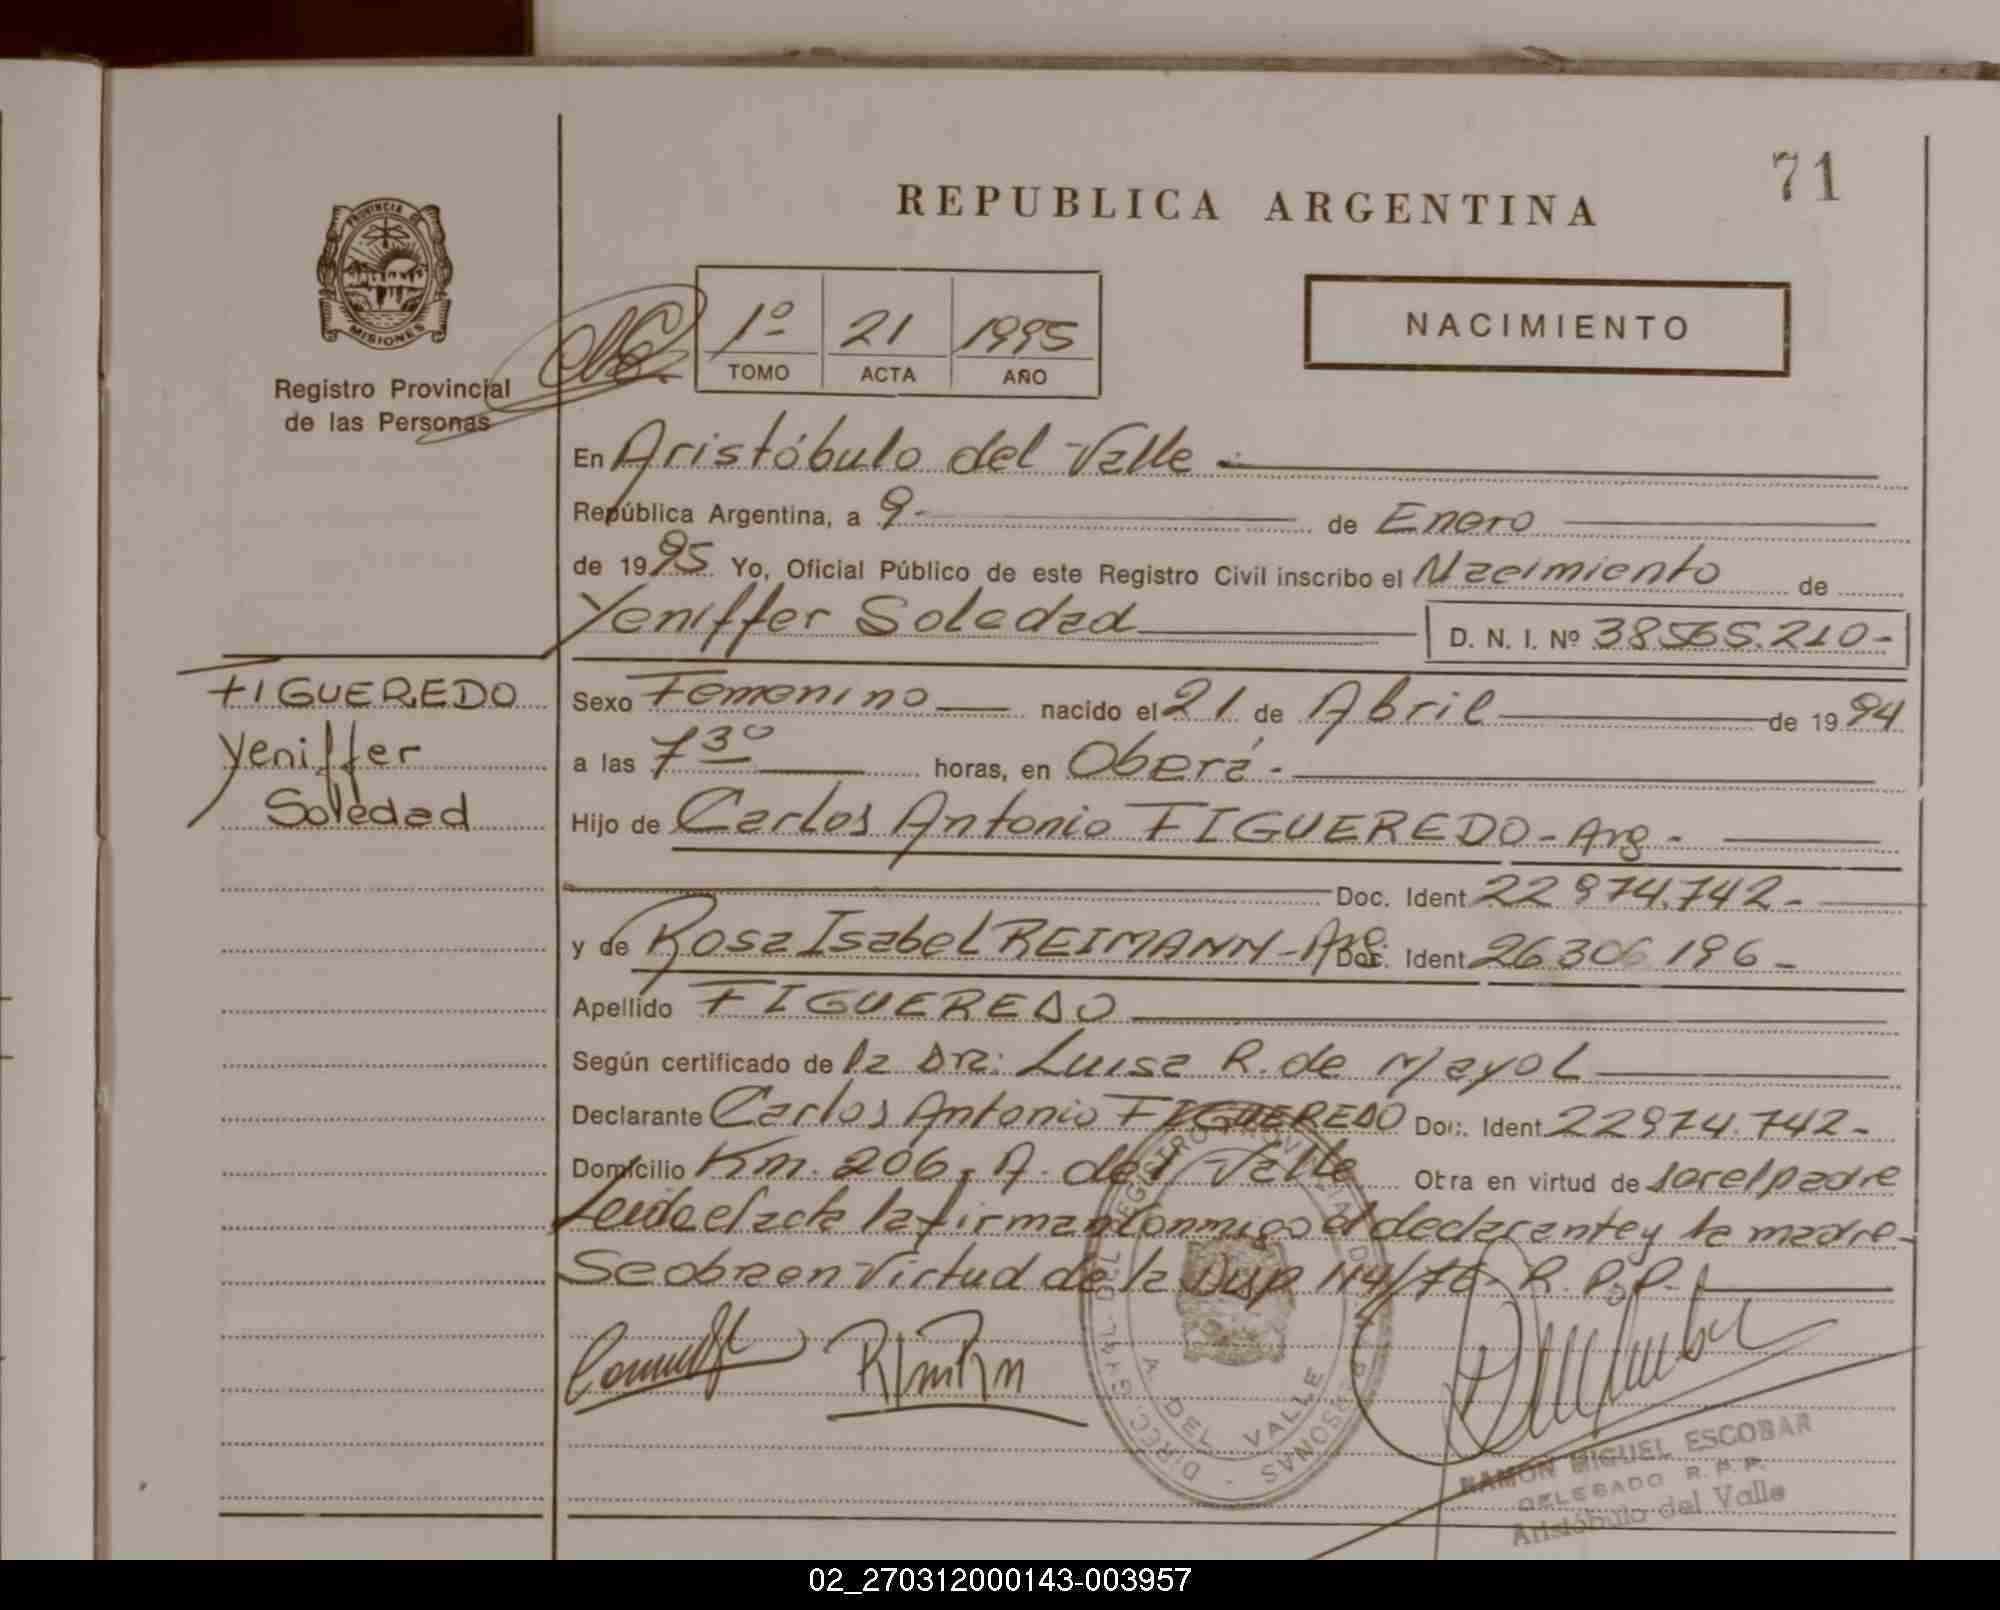 71
REPUBLICA ARGENTINA
PROVINCIA DE
MISIONES
Registro Provincial
de las Personas
1º 21 1995
TOMO ACTA AÑO
NACIMIENTO
En Aristóbulo del Valle
República Argentina, a 9 de Enero
de 1995 Yo, Oficial Público de este Registro Civil inscribo el Nacimiento de
Yeniffer Soledad D. N. I. Nº 38565.210-
FIGUEREDO
Yeniffer
Soledad
Sexo Femenino nacido el 21 de Abril de 1994
a las 7 30 horas, en Oberá-
Hijo de Carlos Antonio FIGUEREDO-Arg-
Doc. Ident 22 974.742-
y de Rosa Isabel REIMANN-Arg. Doc. Ident 26306 196-
Apellido FIGUEREDO
Según certificado de la Dra: Luisa R. de Mayol
Declarante Carlos Antonio FIGUEREDO Doc. Ident 22974.742-
Domicilio Km. 206, A. del Valle Obra en virtud de ser el padre
Leida el acta la firman conmigo el declarante y la madre-
Se obra en virtud de la Disp 114/76- R.P.P.
DIREC. GRAL. DEL REGISTRO PROVINCIAL DE LAS PERSONAS -
A. DEL VALLE
RAMON MIGUEL ESCOBAR
DELEGADO R. P. P.
Aristóbulo del Valle
02_270312000143-003957